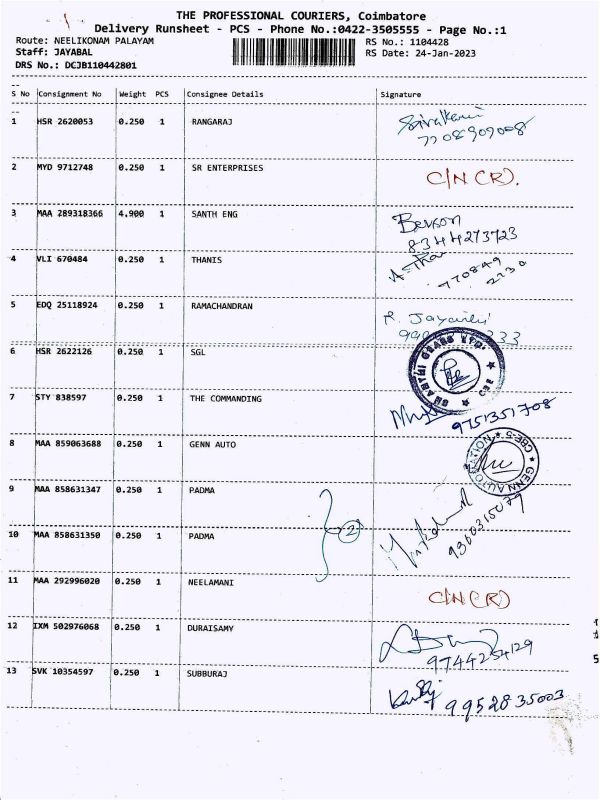 THE PROFESSIONAL COURIERS, Coimbatore
Delivery Runsheet - PCS - Phone No.:0422-3505555 - Page No.:1
Route: NEELIKONAM PALAYAM
RS No.: 1104428
Staff: JAYABAL
RS Date: 24-Jan-2023
DRS No.: DCJB110442801
S No Consignment No Weight PCS Consignee Details Signature
1 HSR 2620053 0.250 1 RANGARAJ
7708909008
2 MYD 9712748 0.250 1 SR ENTERPRISES C/N (R).
3 MAA 289318366 4.900 1 SANTH ENG Benson
8344273723
4 VLI 670484 0.250 1 THANIS
770849
2230
5 EDQ 25118924 0.250 1 RAMACHANDRAN
6 HSR 2622126 0.250 1 SGL
7 STY 838597 0.250 1 THE COMMANDING
9751351708
8 MAA 859063688 0.250 1 GENN AUTO
GENN AUTOMATION CBE-5
9 MAA 858631347 0.250 1 PADMA
2
9360315079
10 MAA 858631350 0.250 1 PADMA
11 MAA 292996020 0.250 1 NEELAMANI C/N (R)
12 IXM 502976068 0.250 1 DURAISAMY
9744254129
13 SVK 10354597 0.250 1 SUBBURAJ
9952835003